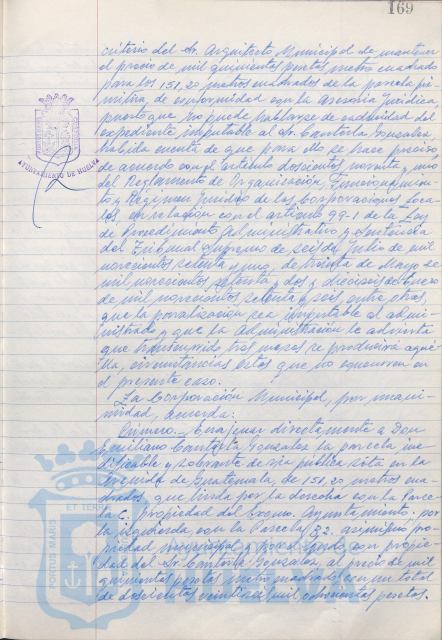 169
criterio del Sr. Arquitecto Municipal de mantener
el precio de mil quinientas pesetas metro cuadrado
para los 151,20 metros cuadrados de la parcela pri-
mitiva de conformidad con la Asesoría Jurídica,
puesto que no puede hablarse de caducidad del
expediente imputable al Sr. Cantista Gonzalez
habida cuenta de que para ello se hace preciso
de acuerdo con el artículo doscientos noventa y uno
del Reglamento de Organización, Funcionamien-
to y Régimen Jurídico de las Corporaciones Loca-
les en relación con el artículo 99-1 de la Ley
de Procedimiento Administrativo y sentencia
del Tribunal Supremo de seis de Julio de mil
novecientos setenta y uno, de treinta de Mayo de
mil novecientos setenta y dos y dieciseis de Enero
de mil novecientos setenta y seis, entre otras,
que la paralización sea imputable al admi-
nistrado y que la Administración le advierta
que transcurrido tres meses se producirá aqué-
lla, circunstancias éstas que no concurren en
el presente caso.
La Corporación Municipal, por unani-
midad, acuerda:
Primero.- Enajenar directamente a Don
Emiliano Gonzalez la parcela ine-
dificable y sobrante de vía pública sita en la
Avenida de Guatemala, de 151,20 metros cua-
drados, que linda por la derecha con la Parce-
la C. propiedad del Excmo. Ayuntamiento; por
la izquierda, con la Parcela 32. asimismo pro-
piedad municipal y por el fondo con propie-
dad del Sr. Gonzalez, al precio de mil
quinientas pesetas metro cuadrado con un total
de doscientas veintiseis mil ochocientas pesetas.
AYUNTAMIENTO DE HUELVA
PORTUS MARIS
ET TERRE